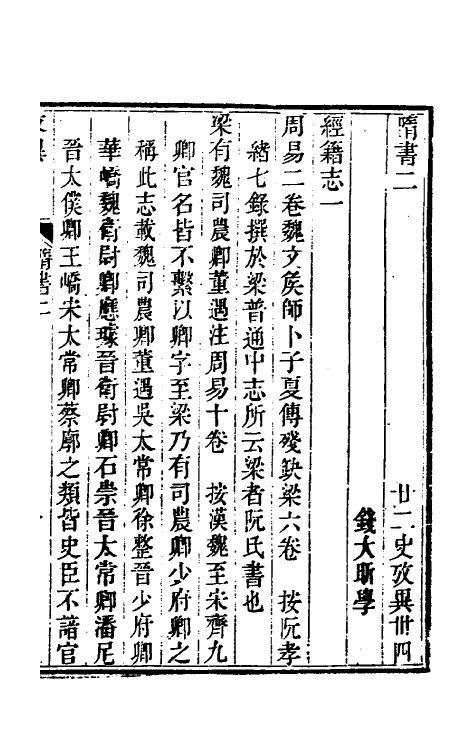 隋書二　廿二史攷異卅四
錢大昕學
經籍志一
周易二卷魏文矦師卜子夏傳殘缺梁六卷　按阮孝
緒七錄撰於梁普通中志所云梁者阮氏書也
梁有魏司農卿董遇注周易十卷　按漢魏至宋齊九
卿官名皆不繫以卿字至梁乃有司農卿少府卿之
稱此志載魏司農卿董遇吳太常卿徐整晉少府卿
華嶠魏衛尉卿應璩晉衛尉卿石崇晉太常卿潘尼
晉太僕卿王嶠宋太常卿蔡廓之類皆史臣不諳官
隋書二